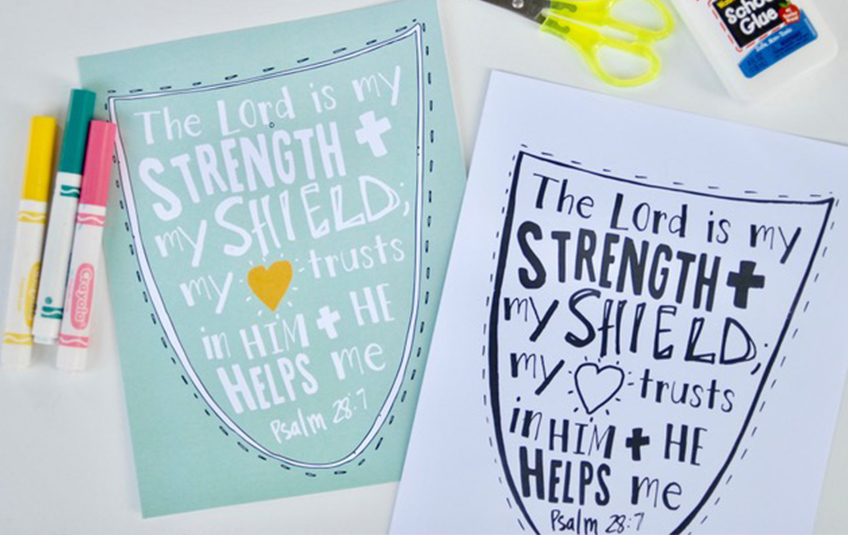 The Lord is my
STRENGTH +
my SHIELD;
my ♥ trusts
in HIM + HE
HELPS me
Psalm 28:7
The Lord is my
STRENGTH +
my SHIELD;
my ♡ trusts
in HIM + HE
HELPS me
Psalm 28:7
Crayola
School
Glue